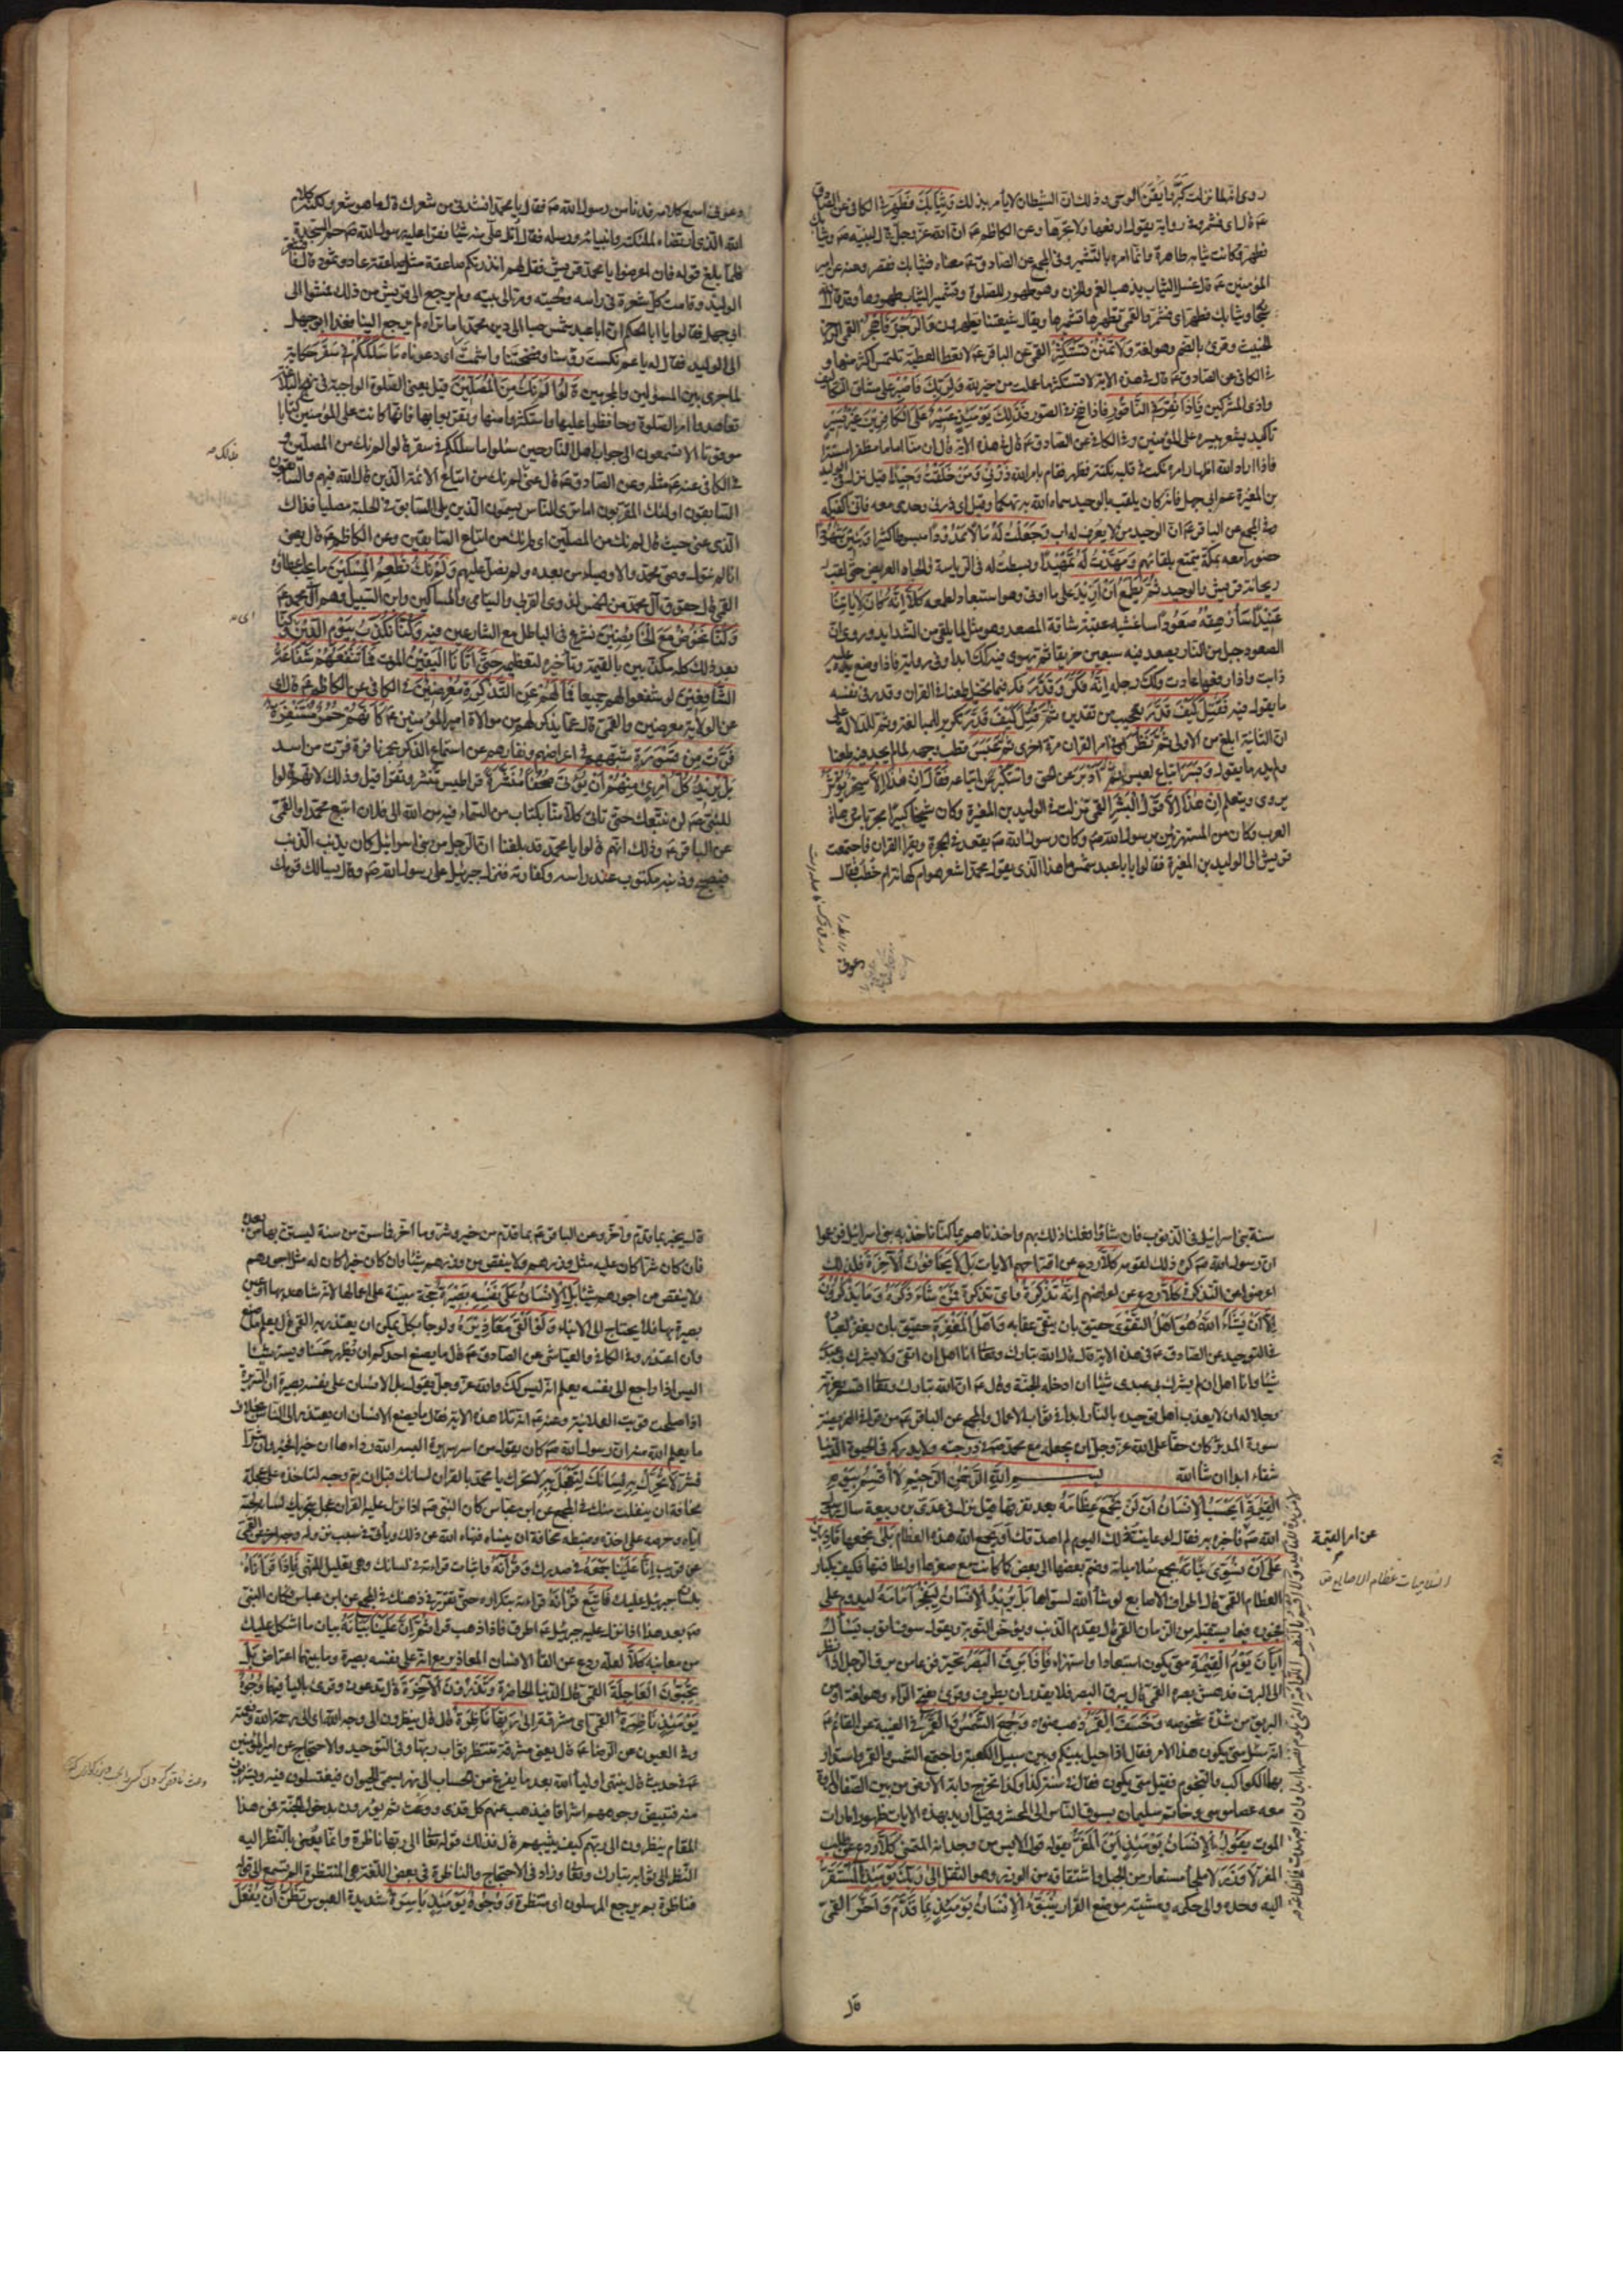 روى انها لما نزلت كبر وايقن انه الوحى وذلك ان الشيطان لا يأمر بذلك وَثِيَابَكَ فَطَهِّرْ فى الكافى عن الصادق
عـ قال اى فشمر وفى رواية يقول ارفعها ولا تجرها وعن الكاظم عـ ان الله عز وجل قال لنبيه صـ وثيابك
فطهر وكانت ثيابه طاهرة وانما امره بالتشمير وفى المجمع عن الصادق عـ معناه فثيابك فقصر وعنه عن امير
المؤمنين عـ قال غسل الثياب يذهب الهم والحزن وهو طهور للصلوة وتشمير الثياب طهور لها وقد قال الله
وثيابك فطهر اى فشمر والقمى تطهيرها تشميرها ويقال شيعتنا يطهرون وَالرُّجْزَ فَاهْجُرْ القمى الرجز
الخبيث وقرئ بالضم وهو لغة وَلَا تَمْنُنْ تَسْتَكْثِرُ القمى عن الباقر عـ لا تعط العطية تلتمس اكثر منها و
فى الكافى عن الصادق عـ قال فى هذه الاية لا تستكثر ما عملت من خير لله وَلِرَبِّكَ فَاصْبِرْ على مشاق التكاليف
واذى المشركين فَإِذَا نُقِرَ فِي النَّاقُورِ فاذا نفخ فى الصور فَذَلِكَ يَوْمَئِذٍ يَوْمٌ عَسِيرٌ عَلَى الْكَافِرِينَ غَيْرُ يَسِيرٍ
تأكيد يشعر بيسره على المؤمنين وفى الكافى عن الصادق عـ قال فى هذه الاية قال ان منا اماما مظفرا مستترا
فاذا اراد الله اظهار امره نكت فى قلبه نكتة فظهر فقام بامر الله ذَرْنِي وَمَنْ خَلَقْتُ وَحِيدًا قيل نزلت فى الوليد
بن المغيرة عم ابى جهل فانه كان يلقب بالوحيد سماه الله به تهكما وقيل اى ذرنى وحدى معه فانى اكفيكه
وفى المجمع عن الباقر عـ ان الوحيد من لا يعرف له اب وَجَعَلْتُ لَهُ مَالًا مَمْدُودًا مبسوطا كثيرا وَبَنِينَ شُهُودًا
حضورا معه بمكة يتمتع بلقائهم وَمَهَّدْتُ لَهُ تَمْهِيدًا وبسطت له فى الرياسة والجاه العريض حتى لقب
ريحانة قريش والوحيد ثُمَّ يَطْمَعُ أَنْ أَزِيدَ على ما اوتى وهو استبعاد لطمعه كَلَّا إِنَّهُ كَانَ لِآيَاتِنَا
عَنِيدًا سَأُرْهِقُهُ صَعُودًا ساغشيه عقبة شاقة المصعد وهو مثل لما يلقى من الشدايد وروى ان
الصعود جبل من النار يصعد فيه سبعين خريفا ثم يهوى فيه كذلك ابدا وفى رواية فاذا وضع يده عليه
ذابت واذا رفعها عادت وكذلك رجله إِنَّهُ فَكَّرَ وَقَدَّرَ فكر فيما يخيل طعنا فى القران وقدر فى نفسه
ما يقول فيه فَقُتِلَ كَيْفَ قَدَّرَ تعجيب من تقديره ثُمَّ قُتِلَ كَيْفَ قَدَّرَ تكرير للمبالغة وثم للدلالة على
ان الثانية ابلغ من الاولى ثُمَّ نَظَرَ اى فى امر القران مرة اخرى ثُمَّ عَبَسَ قطب وجهه لما لم يجد فيه طعنا
ولم يدر ما يقول وَبَسَرَ اتباع لعبس ثُمَّ أَدْبَرَ عن الحق وَاسْتَكْبَرَ عن اتباعه فَقَالَ إِنْ هَذَا إِلَّا سِحْرٌ يُؤْثَرُ
يروى ويتعلم إِنْ هَذَا إِلَّا قَوْلُ الْبَشَرِ القمى نزلت فى الوليد بن المغيرة وكان شيخا كبيرا مجربا من دهاة
العرب وكان من المستهزئين برسول الله صـ وكان رسول الله صـ يقعد فى الحجرة ويقرأ القران فاجتمعت
قريش الى الوليد بن المغيرة فقالوا يا ابا عبد شمس ما هذا الذى يقول محمد اشعر هو ام كهانة ام خطب فقال
دعونى
دعونى اسمع كلامه فدنا من رسول الله صـ فقال يا محمد انشدنى من شعرك قال ما هو شعر ولكنه كلام
الله الذى ارتضاه لملئكته وانبيائه ورسله فقال اتل على منه شيئا فقرأ عليه رسول الله صـ حم السجدة
فلما بلغ قوله فان اعرضوا يا محمد قريش فقل لهم انذرتكم صاعقة مثل صاعقة عاد وثمود قال فاقشعر
الوليد وقامت كل شعرة فى راسه ولحيته ومر الى بيته ولم يرجع الى قريش من ذلك فمشوا الى
ابى جهل فقالوا يا ابا الحكم ان ابا عبد شمس صبا الى دين محمد اما تراه لم يرجع الينا فغدا ابو جهل
الى الوليد فقال له يا عم نكست رؤسنا وفضحتنا واشمت اى دعوناه مَا سَلَكَكُمْ فِي سَقَرَ حكاية
لما جرى بين المسئولين والمجرمين قَالُوا لَمْ نَكُ مِنَ الْمُصَلِّينَ قيل يعنى الصلوة الواجبة فى نهج البلاغة
تعاهدوا امر الصلوة وحافظوا عليها واستكثروا منها وتقربوا بها فانها كانت على المؤمنين كتابا
موقوتا الا تسمعون الى جواب اهل النار حين سئلوا ما سلككم فى سقر قالوا لم نك من المصلين و
فى الكافى عنه عـ مثله وعن الصادق عـ قال عنى لم نك من اتباع الائمة الذين قال الله فيهم والسابقون
السابقون اولئك المقربون اما ترى الناس يسمون الذين يلى السابق فى الحلبة مصليا فذلك
الذى عنى حيث قال لم نك من المصلين اى لم نك من اتباع السابقين وعن الكاظم عـ قال يعنى
انا لم نتول وصى محمد والاوصياء من بعده ولم نصل عليهم وَلَمْ نَكُ نُطْعِمُ الْمِسْكِينَ ما يجب اعطاؤه
القمى قال حقوق آل محمد من الخمس لذوى القربى واليتامى والمساكين وابن السبيل وهم آل محمد عـ
وَكُنَّا نَخُوضُ مَعَ الْخَائِضِينَ نشرع فى الباطل مع الشارعين فيه وَكُنَّا نُكَذِّبُ بِيَوْمِ الدِّينِ وكنا
بعد ذلك كله مكذبين بالقيمة وتأخيره لتعظيمه حَتَّى أَتَانَا الْيَقِينُ الموت فَمَا تَنْفَعُهُمْ شَفَاعَةُ
الشَّافِعِينَ لو شفعوا لهم جميعا فَمَا لَهُمْ عَنِ التَّذْكِرَةِ مُعْرِضِينَ فى الكافى عن الكاظم عـ قال اى
عن الولاية معرضين والقمى قال عما يذكر لهم من موالاة امير المؤمنين عـ كَأَنَّهُمْ حُمُرٌ مُسْتَنْفِرَةٌ
فَرَّتْ مِنْ قَسْوَرَةٍ شبههم فى اعراضهم ونفارهم عن استماع الذكر بحمر نافرة فرت من اسد
بَلْ يُرِيدُ كُلُّ امْرِئٍ مِنْهُمْ أَنْ يُؤْتَى صُحُفًا مُنَشَّرَةً قراطيس تنشر وتقرأ قيل وذلك لانهم قالوا
للنبى صـ لن نتبعك حتى تاتى كلا منا بكتاب من السماء فيه من الله الى فلان اتبع محمدا والقمى
عن الباقر عـ وذلك انهم قالوا يا محمد قد بلغنا ان الرجل من بنى اسرائيل كان يذنب الذنب
فيصبح وذنبه مكتوب عند راسه وكفارته فنزل جبرئيل على رسول الله صـ وقال يسالك قومك
سنة بنى اسرائيل فى الذنوب فان شاؤا فعلنا ذلك بهم واخذناهم بما كنا ناخذ به بنى اسرائيل فزعموا
ان رسول الله صـ كره ذلك لقومه كَلَّا ردع عن اقتراحهم الايات بَلْ لَا يَخَافُونَ الْآخِرَةَ فلذلك
اعرضوا عن التذكرة كَلَّا ردع عن اعراضهم إِنَّهُ تَذْكِرَةٌ واى تذكرة فَمَنْ شَاءَ ذَكَرَهُ وَمَا يَذْكُرُونَ
إِلَّا أَنْ يَشَاءَ اللَّهُ هُوَ أَهْلُ التَّقْوَى حقيق بان يتقى عقابه وَأَهْلُ الْمَغْفِرَةِ حقيق بان يغفر لعباده
فى التوحيد عن الصادق عـ فى هذه الاية قال قال الله تبارك وتعالى انا اهل ان اتقى ولا يشرك بى عبدى
شيئا وانا اهل ان لم يشرك بى عبدى شيئا ان ادخله الجنة وقال عـ ان الله تبارك وتعالى اقسم بعزته
وجلاله ان لا يعذب اهل توحيده بالنار ابدا فى ثواب الاعمال والمجمع عن الباقر عـ من قرأ فى الفريضة
سورة المدثر كان حقا على الله عز وجل ان يجعله مع محمد صـ فى درجته ولا يدركه فى الحيوة الدنيا
شقاء ابدا ان شاء الله بسم الله الرحمن الرحيم لَا أُقْسِمُ بِيَوْمِ
الْقِيَمَةِ أَيَحْسَبُ الْإِنْسَانُ أَنْ لَنْ نَجْمَعَ عِظَامَهُ بعد تفرقها قيل نزلت فى عدى بن ربيعة سال رسول
الله صـ فاخبره به فقال لو عاينت ذلك اليوم لم اصدقك او يجمع الله هذه العظام بَلَى نجمعها قَادِرِينَ
عَلَى أَنْ نُسَوِّيَ بَنَانَهُ بجمع سلامياته وضم بعضها الى بعض كما كانت مع صغرها ولطافتها فكيف بكبار
العظام القمى قال اطراف الاصابع لو شاء الله لسواها بَلْ يُرِيدُ الْإِنْسَانُ لِيَفْجُرَ أَمَامَهُ ليدوم على
فجوره فيما يستقبله من الزمان القمى قال يقدم الذنب ويؤخر التوبة ويقول سوف اتوب يَسْأَلُ
أَيَّانَ يَوْمُ الْقِيَمَةِ متى يكون استبعادا واستهزاء فَإِذَا بَرِقَ الْبَصَرُ تحير فزعا من برق الرجل اذا نظر
الى البرق فدهش بصره القمى قال يبرق البصر فلا يقدر ان يطرف وقرئ بفتح الراء وهو لغة او من
البريق من شدة شخوصه وَخَسَفَ الْقَمَرُ ذهب ضوءه وَجُمِعَ الشَّمْسُ وَالْقَمَرُ فى الغيبة عن القائم عـ
انه سئل متى يكون هذا الامر فقال اذا حيل بينكم وبين سبيل الكعبة واجتمع الشمس والقمر واستدار
بهما الكواكب والنجوم فقيل متى يكون فقال فى سنة كذا وكذا تخرج دابة الارض من بين الصفا والمروة
معه عصا موسى وخاتم سليمان يسوق الناس الى المحشر وقيل اريد بهذه الايات ظهور امارات
الموت يَقُولُ الْإِنْسَانُ يَوْمَئِذٍ أَيْنَ الْمَفَرُّ يقوله قول الايس من وجدانه المتمنى كَلَّا ردع عن طلب
المفر لَا وَزَرَ لا ملجأ مستعار من الجبل واشتقاقه من الوزر وهو الثقل إِلَى رَبِّكَ يَوْمَئِذٍ الْمُسْتَقَرُّ
اليه وحده والى حكمه ومشيته موضع القرار يُنَبَّؤُ الْإِنْسَانُ يَوْمَئِذٍ بِمَا قَدَّمَ وَأَخَّرَ القمى
عن امر القيمة
السلاميات عظام الاصابع ص
قال
قال يخبر بما قدم واخر وعن الباقر عـ بما قدم من خير وشر وما اخر فما سن من سنة ليستن بها من بعده
فان كان شرا كان عليه مثل وزرهم ولا ينقص من وزرهم شيئا وان كان خيرا كان له مثل اجورهم
ولا ينقص من اجورهم شيئا بَلِ الْإِنْسَانُ عَلَى نَفْسِهِ بَصِيرَةٌ حجة بينة على اعمالها لانه شاهد بها او عين
بصيرة بها فلا يحتاج الى الانباء وَلَوْ أَلْقَى مَعَاذِيرَهُ ولو جاء بكل ما يمكن ان يعتذر به القمى قال يعلم ما صنع
وان اعتذر وفى الكافى والعياشى عن الصادق عـ قال ما يصنع احدكم ان يظهر حسنا ويستر سيئا
اليس اذا راجع الى نفسه يعلم انه ليس كذلك والله عز وجل يقول بل الانسان على نفسه بصيرة ان السريرة
اذا صلحت قويت العلانية وعنه عـ انه تلا هذه الاية فقال ما يصنع الانسان ان يعتذر الى الناس بخلاف
ما يعلم الله منه ان رسول الله صـ كان يقول من اسر سريرة البسه الله رداءها ان خيرا فخير وان شرا
فشر لَا تُحَرِّكْ بِهِ لِسَانَكَ لِتَعْجَلَ بِهِ لا تحرك يا محمد بالقران لسانك قبل ان يتم وحيه لتاخذه على عجلة
مخافة ان ينفلت منك فى المجمع عن ابن عباس كان النبى صـ اذا نزل عليه القران عجل بتحريك لسانه لحبه
اياه وحرصه على اخذه وضبطه مخافة ان ينساه فنهاه الله عن ذلك
عن قريب إِنَّ عَلَيْنَا جَمْعَهُ فى صدرك وَقُرْآنَهُ واثبات قراءته فى لسانك وهو تعليل للنهى فَإِذَا قَرَأْنَاهُ
بلسان جبرئيل عليك فَاتَّبِعْ قُرْآنَهُ قراءته بتكراره حتى تقرر فى ذهنك فى المجمع عن ابن عباس فكان النبى
صـ بعد هذا اذا نزل عليه جبرئيل عـ اطرق فاذا ذهب قرأ ثُمَّ إِنَّ عَلَيْنَا بَيَانَهُ بيان ما اشكل عليك
من معانيه كَلَّا لعله ردع عن القاء الانسان المعاذير مع انه على نفسه بصيرة وما بينهما اعتراض بَلْ
تُحِبُّونَ الْعَاجِلَةَ القمى قال الدنيا الحاضرة وَتَذَرُونَ الْآخِرَةَ قال تدعون وقرئ بالياء فيهما وُجُوهٌ
يَوْمَئِذٍ نَاضِرَةٌ القمى اى مشرقة إِلَى رَبِّهَا نَاظِرَةٌ قال قال ينظرون الى وجه الله اى الى رحمة الله ونعمته
وفى العيون عن الرضا عـ قال يعنى مشرقة تنتظر ثواب ربها وفى التوحيد والاحتجاج عن امير المؤمنين
عـ فى حديث قال ينتهى اولياء الله بعد ما يفرغ من الحساب الى نهر يسمى الحيوان فيغتسلون فيه ويشربون
منه فتبيض وجوههم اشراقا فيذهب عنهم كل قذى ووعث ثم يؤمرون بدخول الجنة فمن هذا
المقام ينظرون الى ربهم كيف يثيبهم قال فذلك قوله تعالى الى ربها ناظرة وانما يعنى بالنظر اليه
النظر الى ثوابه تبارك وتعالى وزاد فى الاحتجاج والناظرة فى بعض اللغة هى المنتظرة الم تسمع الى قوله
فناظرة بم يرجع المرسلون اى منتظرة وَوُجُوهٌ يَوْمَئِذٍ بَاسِرَةٌ شديدة العبوس تَظُنُّ أَنْ يُفْعَلَ